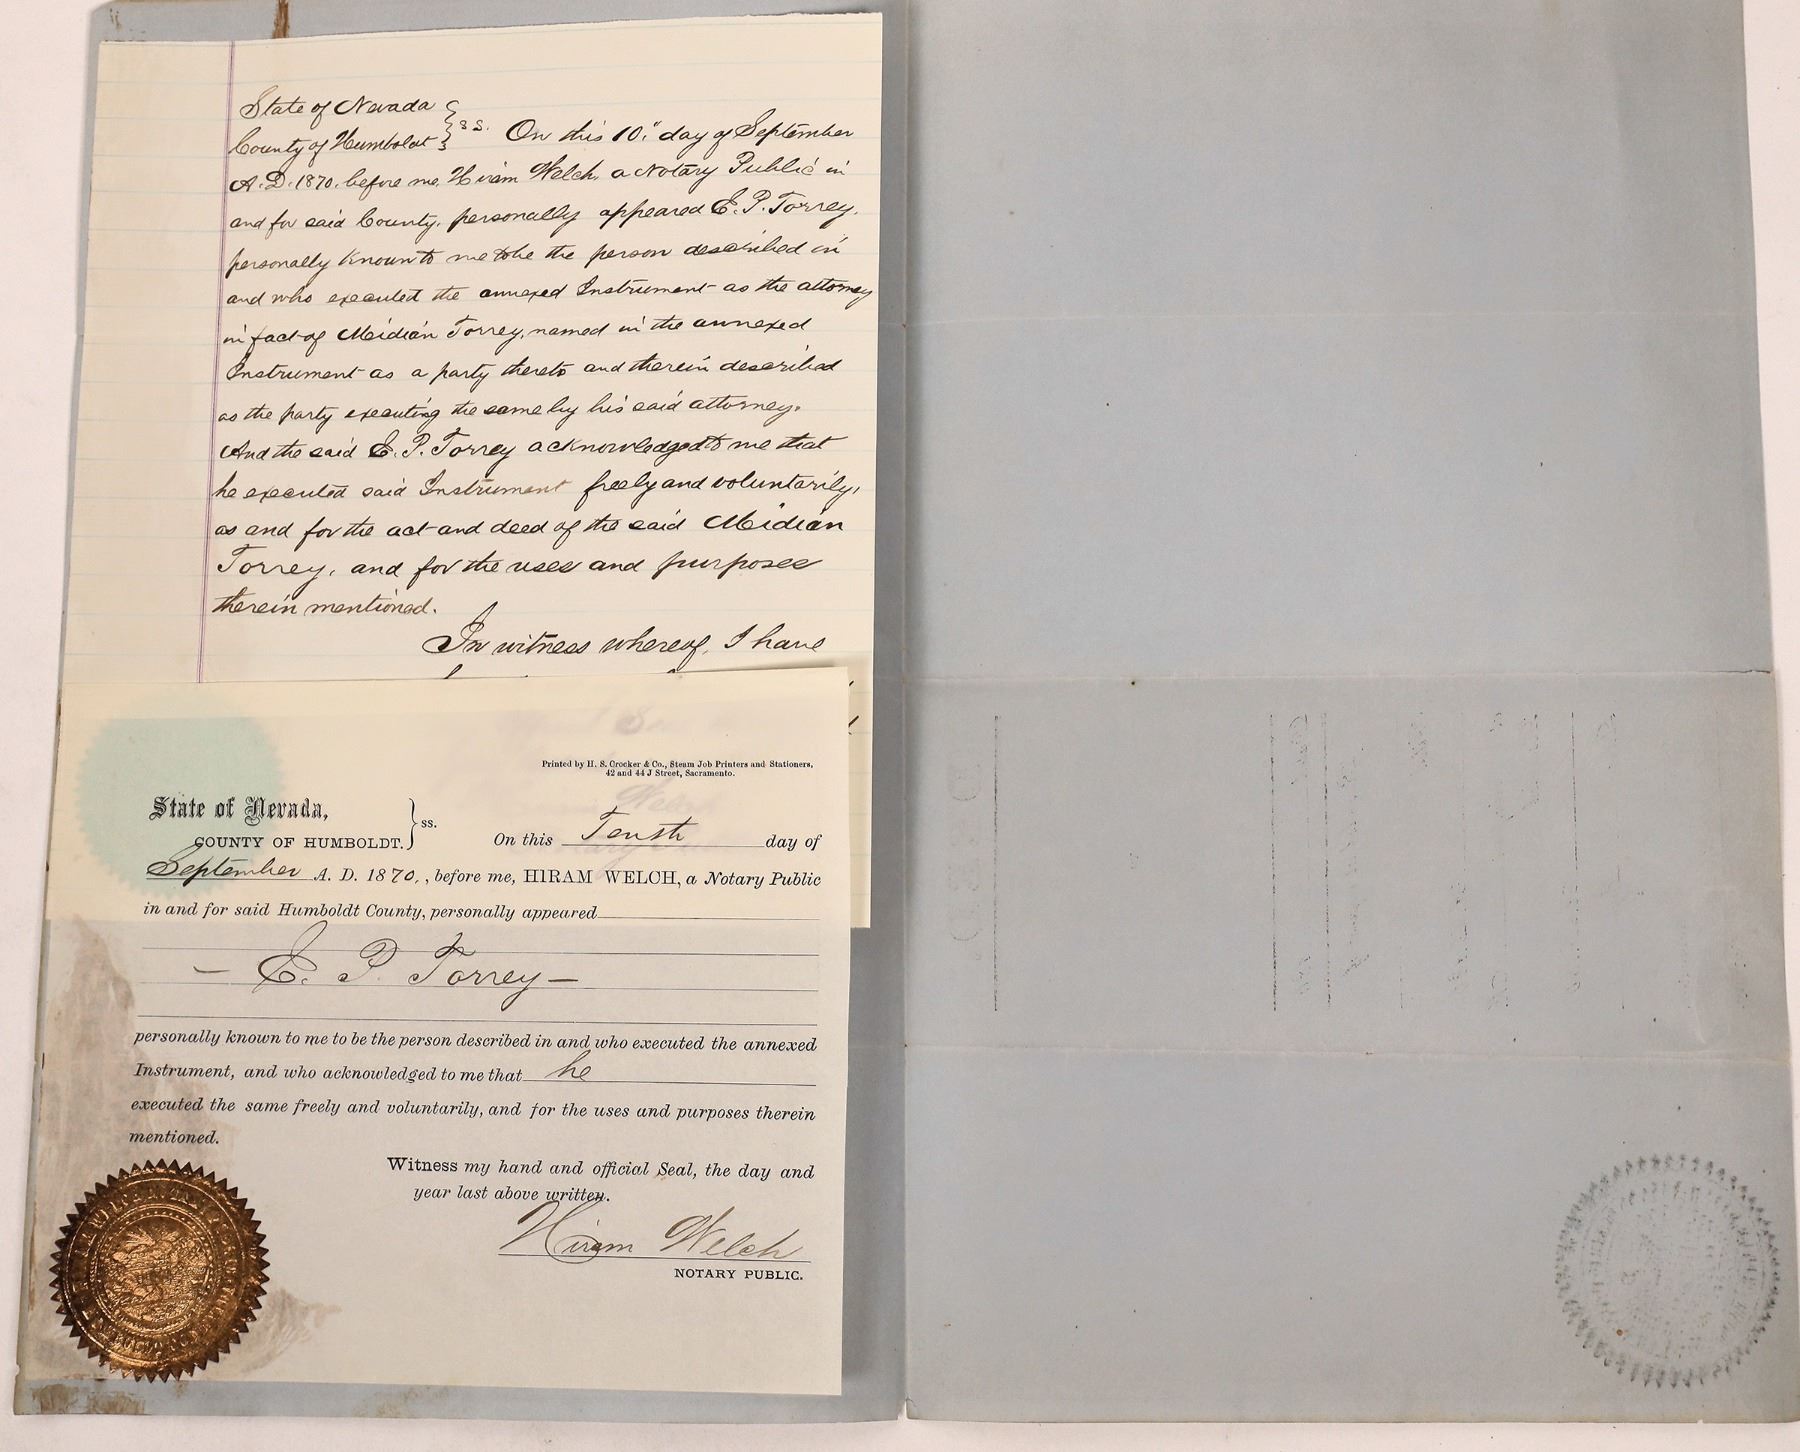 State of Nevada
County of Humboldt } ss. On this 10." day of September
A.D. 1870, before me, Hiram Welch, a Notary Public in
and for said County, personally appeared E. P. Torrey,
personally known to me to be the person described in
and who executed the annexed Instrument as the attorney
in fact of Meidian Torrey, named in the annexed
Instrument as a party thereto and therein described
as the party executing the same by his said attorney.
And the said E. P. Torrey acknowledged to me that
he executed said Instrument freely and voluntarily,
as and for the act and deed of the said Meidian
Torrey, and for the uses and purposes
therein mentioned.
In witness whereof, I have
Printed by H. S. Crocker & Co., Steam Job Printers and Stationers,
42 and 44 J Street, Sacramento.
State of Nevada,
COUNTY OF HUMBOLDT. } ss. On this Tenth day of
September A. D. 1870, , before me, HIRAM WELCH, a Notary Public
in and for said Humboldt County, personally appeared
— E. P. Torrey —
personally known to me to be the person described in and who executed the annexed
Instrument, and who acknowledged to me that he
executed the same freely and voluntarily, and for the uses and purposes therein
mentioned.
Witness my hand and official Seal, the day and
year last above written.
Hiram Welch
NOTARY PUBLIC.